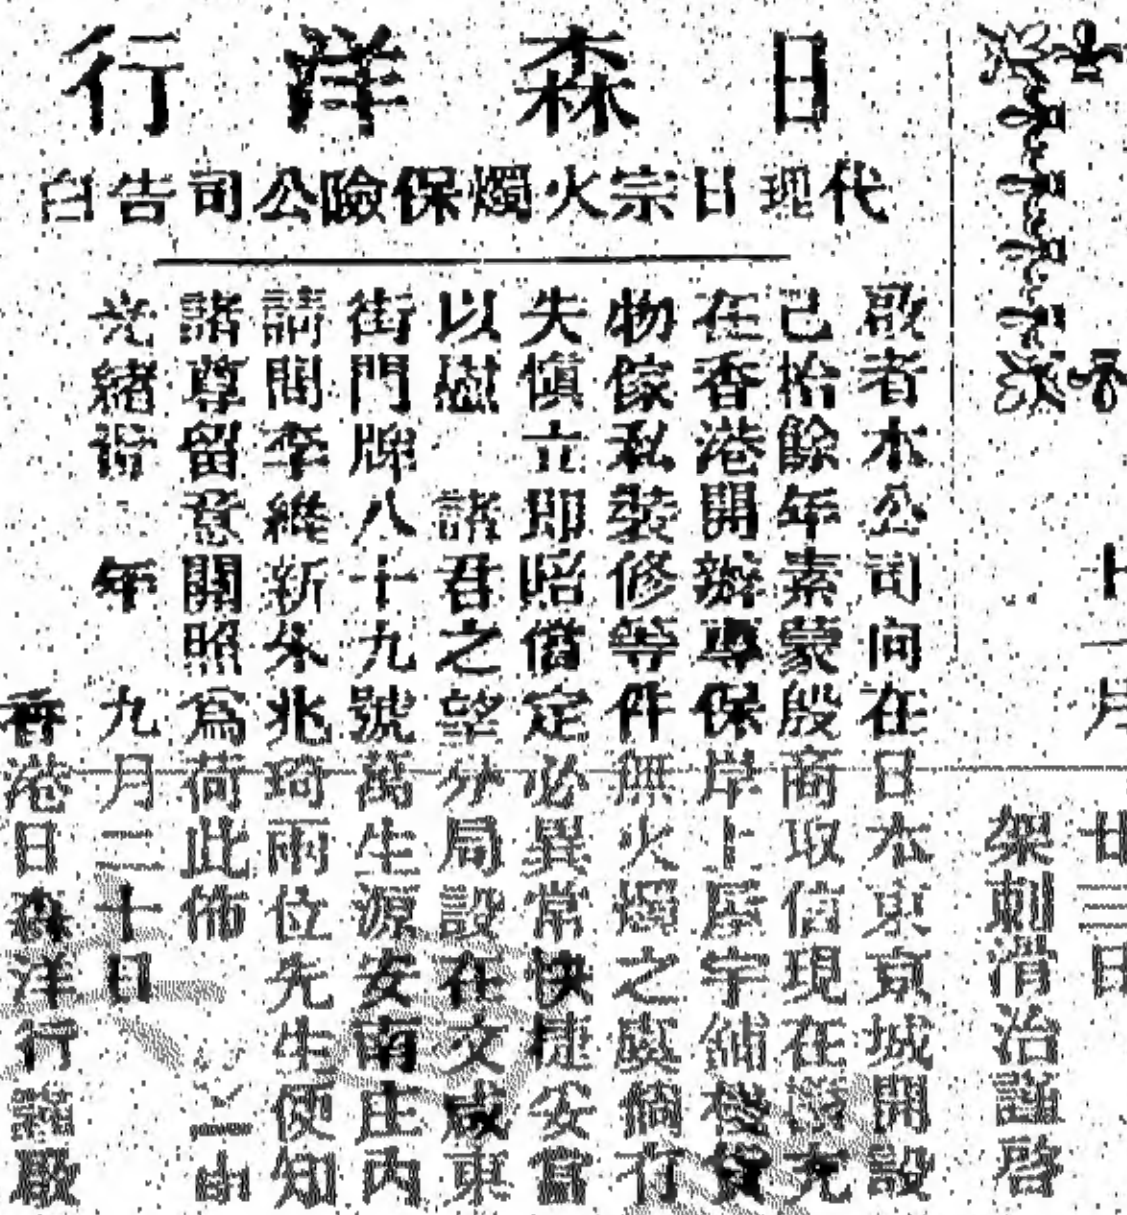 日森洋行
代理日宗火燭保險公司告白
啟者本公司向在日本東京城開設
已拾餘年素蒙殷商取信現在充
在香港開辦專保岸上屋宇舖樓貨
物傢私裝修等件無火燭之虞倘有
失愼立即昭償定必異常快捷安當
以慰 諸君之望分局設在文咸東
街門牌八十九號萬生源安南庄内
請問李繼新朱兆琦兩位先生便知
諸尊留意關照爲荷此佈
光緒 年 九月三十日
香港日森洋行謹啟
月廿三日
架刺滑治謹啓